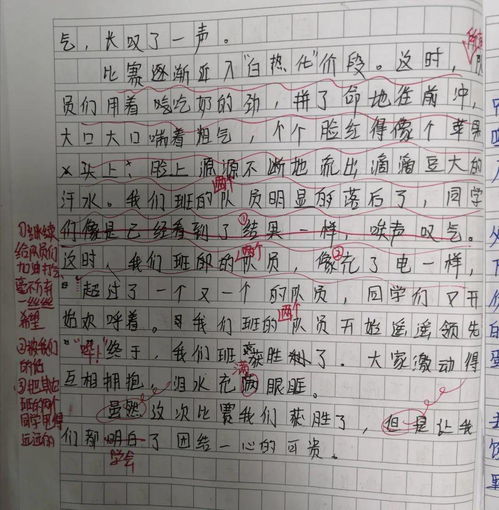 气，长叹了一声。
比赛逐渐进入"白热化"阶段。这时，队
员们用着吃奶的劲，拼了命地往前冲，
大口大口喘着粗气，个个脸红得像个苹果
头上、脸上源源不断地流出滴滴豆大的
两个
汗水。我们班的队员明显的落后了，同学
①
们像是已经看到了结果一样，唉声叹气。
两个 ②
这时，我们班的队员，像充了电一样，
超过了一个又一个的队员，同学们又开
两个
始欢呼着。我们班的队员开始遥遥领先
终于，我们班获胜了。大家激动得
满
互相拥抱，泪水充满眼眶。
虽然这次比赛我们获胜了，但是让我
们都明白了团结一心的可贵。
学会
①继续
给队员们
加油打气
一丝丝
希望
②被我们
的
③把其它
班的两个
同学甩得
远远的